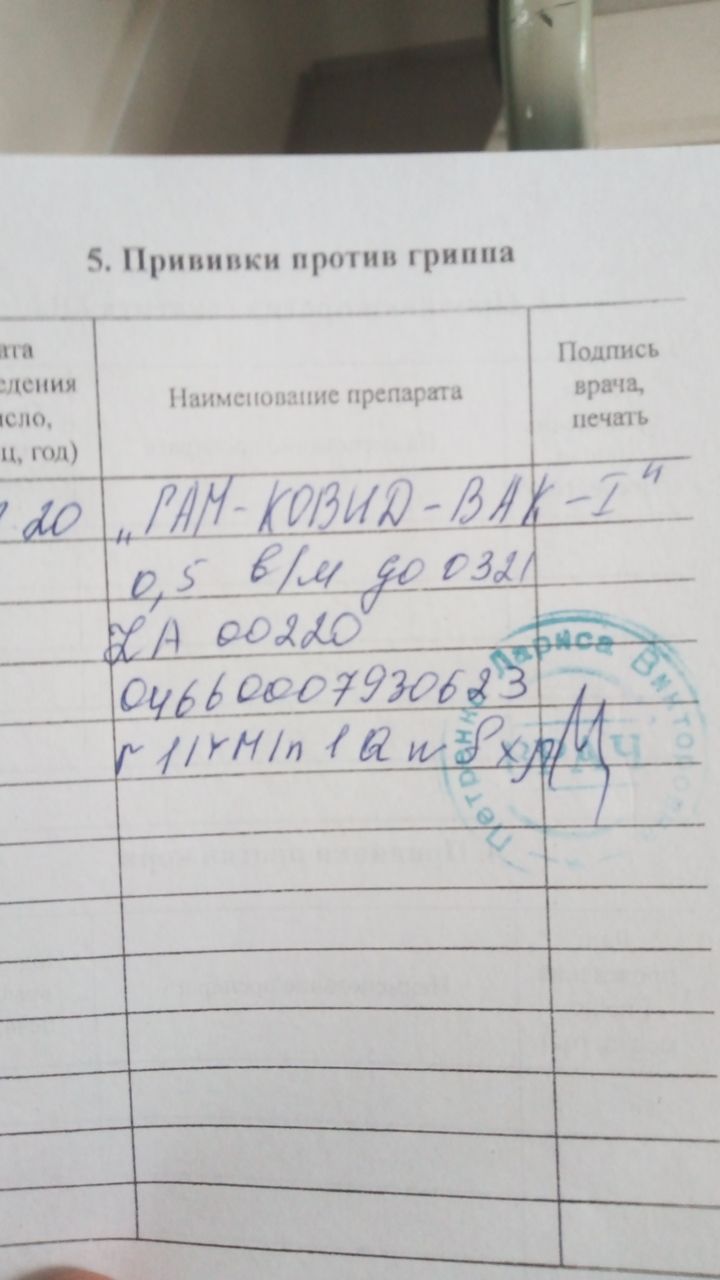 5. Прививки против гриппа
ата
едения
исло,
ц, год)
Наименование препарата
Подпись
врача,
печать
20
„ГАМ-КОВИД-ВАК-I"
0,5 в/м до 0321
ZA 00220
04660007930623
Петренко Лариса Викторовна
ВРАЧ